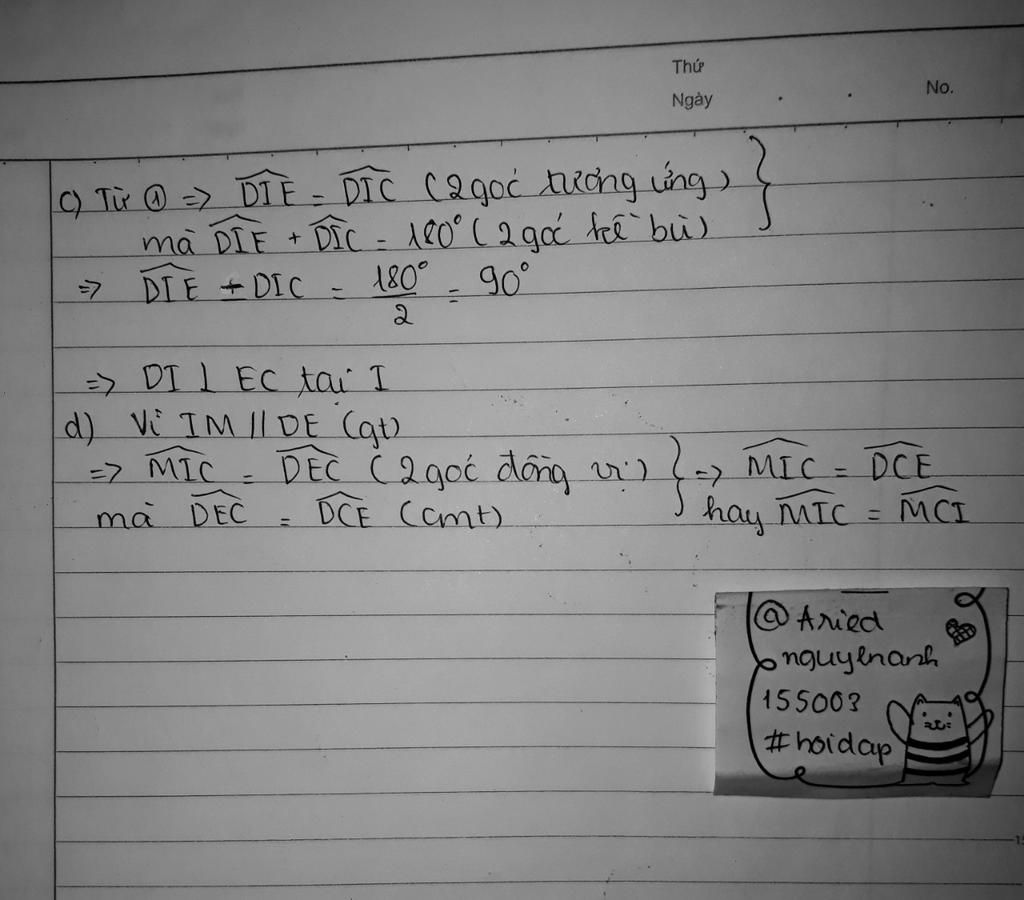 Thứ
Ngày . . No.
c) Từ ① => DIE = DIC (2 góc tương ứng)
mà DIE + DIC = 180° (2 góc kề bù)
=> DIE + DIC = 180°/2 = 90°
=> DI ⊥ EC tại I
d) Vì IM // DE (gt)
=> MIC = DEC (2 góc đồng vị) } => MIC = DCE
mà DEC = DCE (cmt) hay MIC = MCI
@Aried
nguyenanh
155003
#hoidap